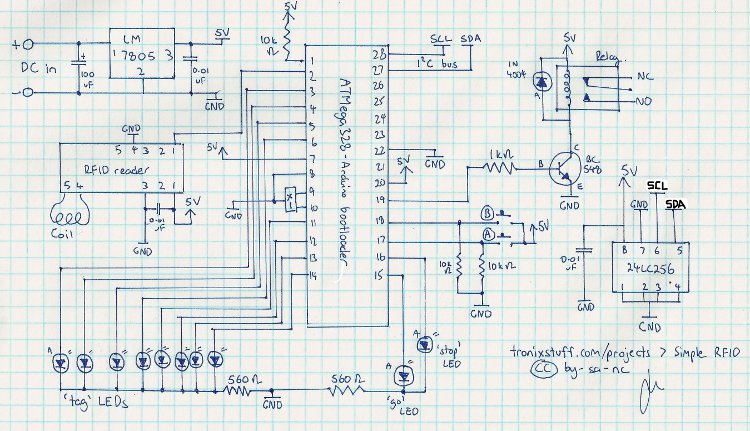 +
DC in
-
100
uF
LM
1 7805 3
2
5V
0.01
uF
GND
5V
10k
Ω
ATMega328-Arduino bootloader
1
2
3
4
5
6
7
8
9
10
11
12
13
14
28
27
26
25
24
23
22
21
20
19
18
17
16
15
SCL SDA
I²C bus
GND
5V
GND
5 4 3 2 1
RFID reader
5 4 3 2 1
Coil
0.01
uF
5V
GND
5V
GND
X1
5V
Relay
IN
4004
A
NC
NO
1kΩ
B
C
BC
548
E
GND
B
A
5V
10k
Ω
10kΩ
GND
5V
SCL
GND
SDA
0.01
uF
GND
8 7 6 5
24LC256
1 2 3 4
GND
A
'tag' LEDs
560Ω
GND
560Ω
A
'go'
LED
A
'stop'
LED
tronixstuff.com/projects > Simple RFID
CC by-sa-nc